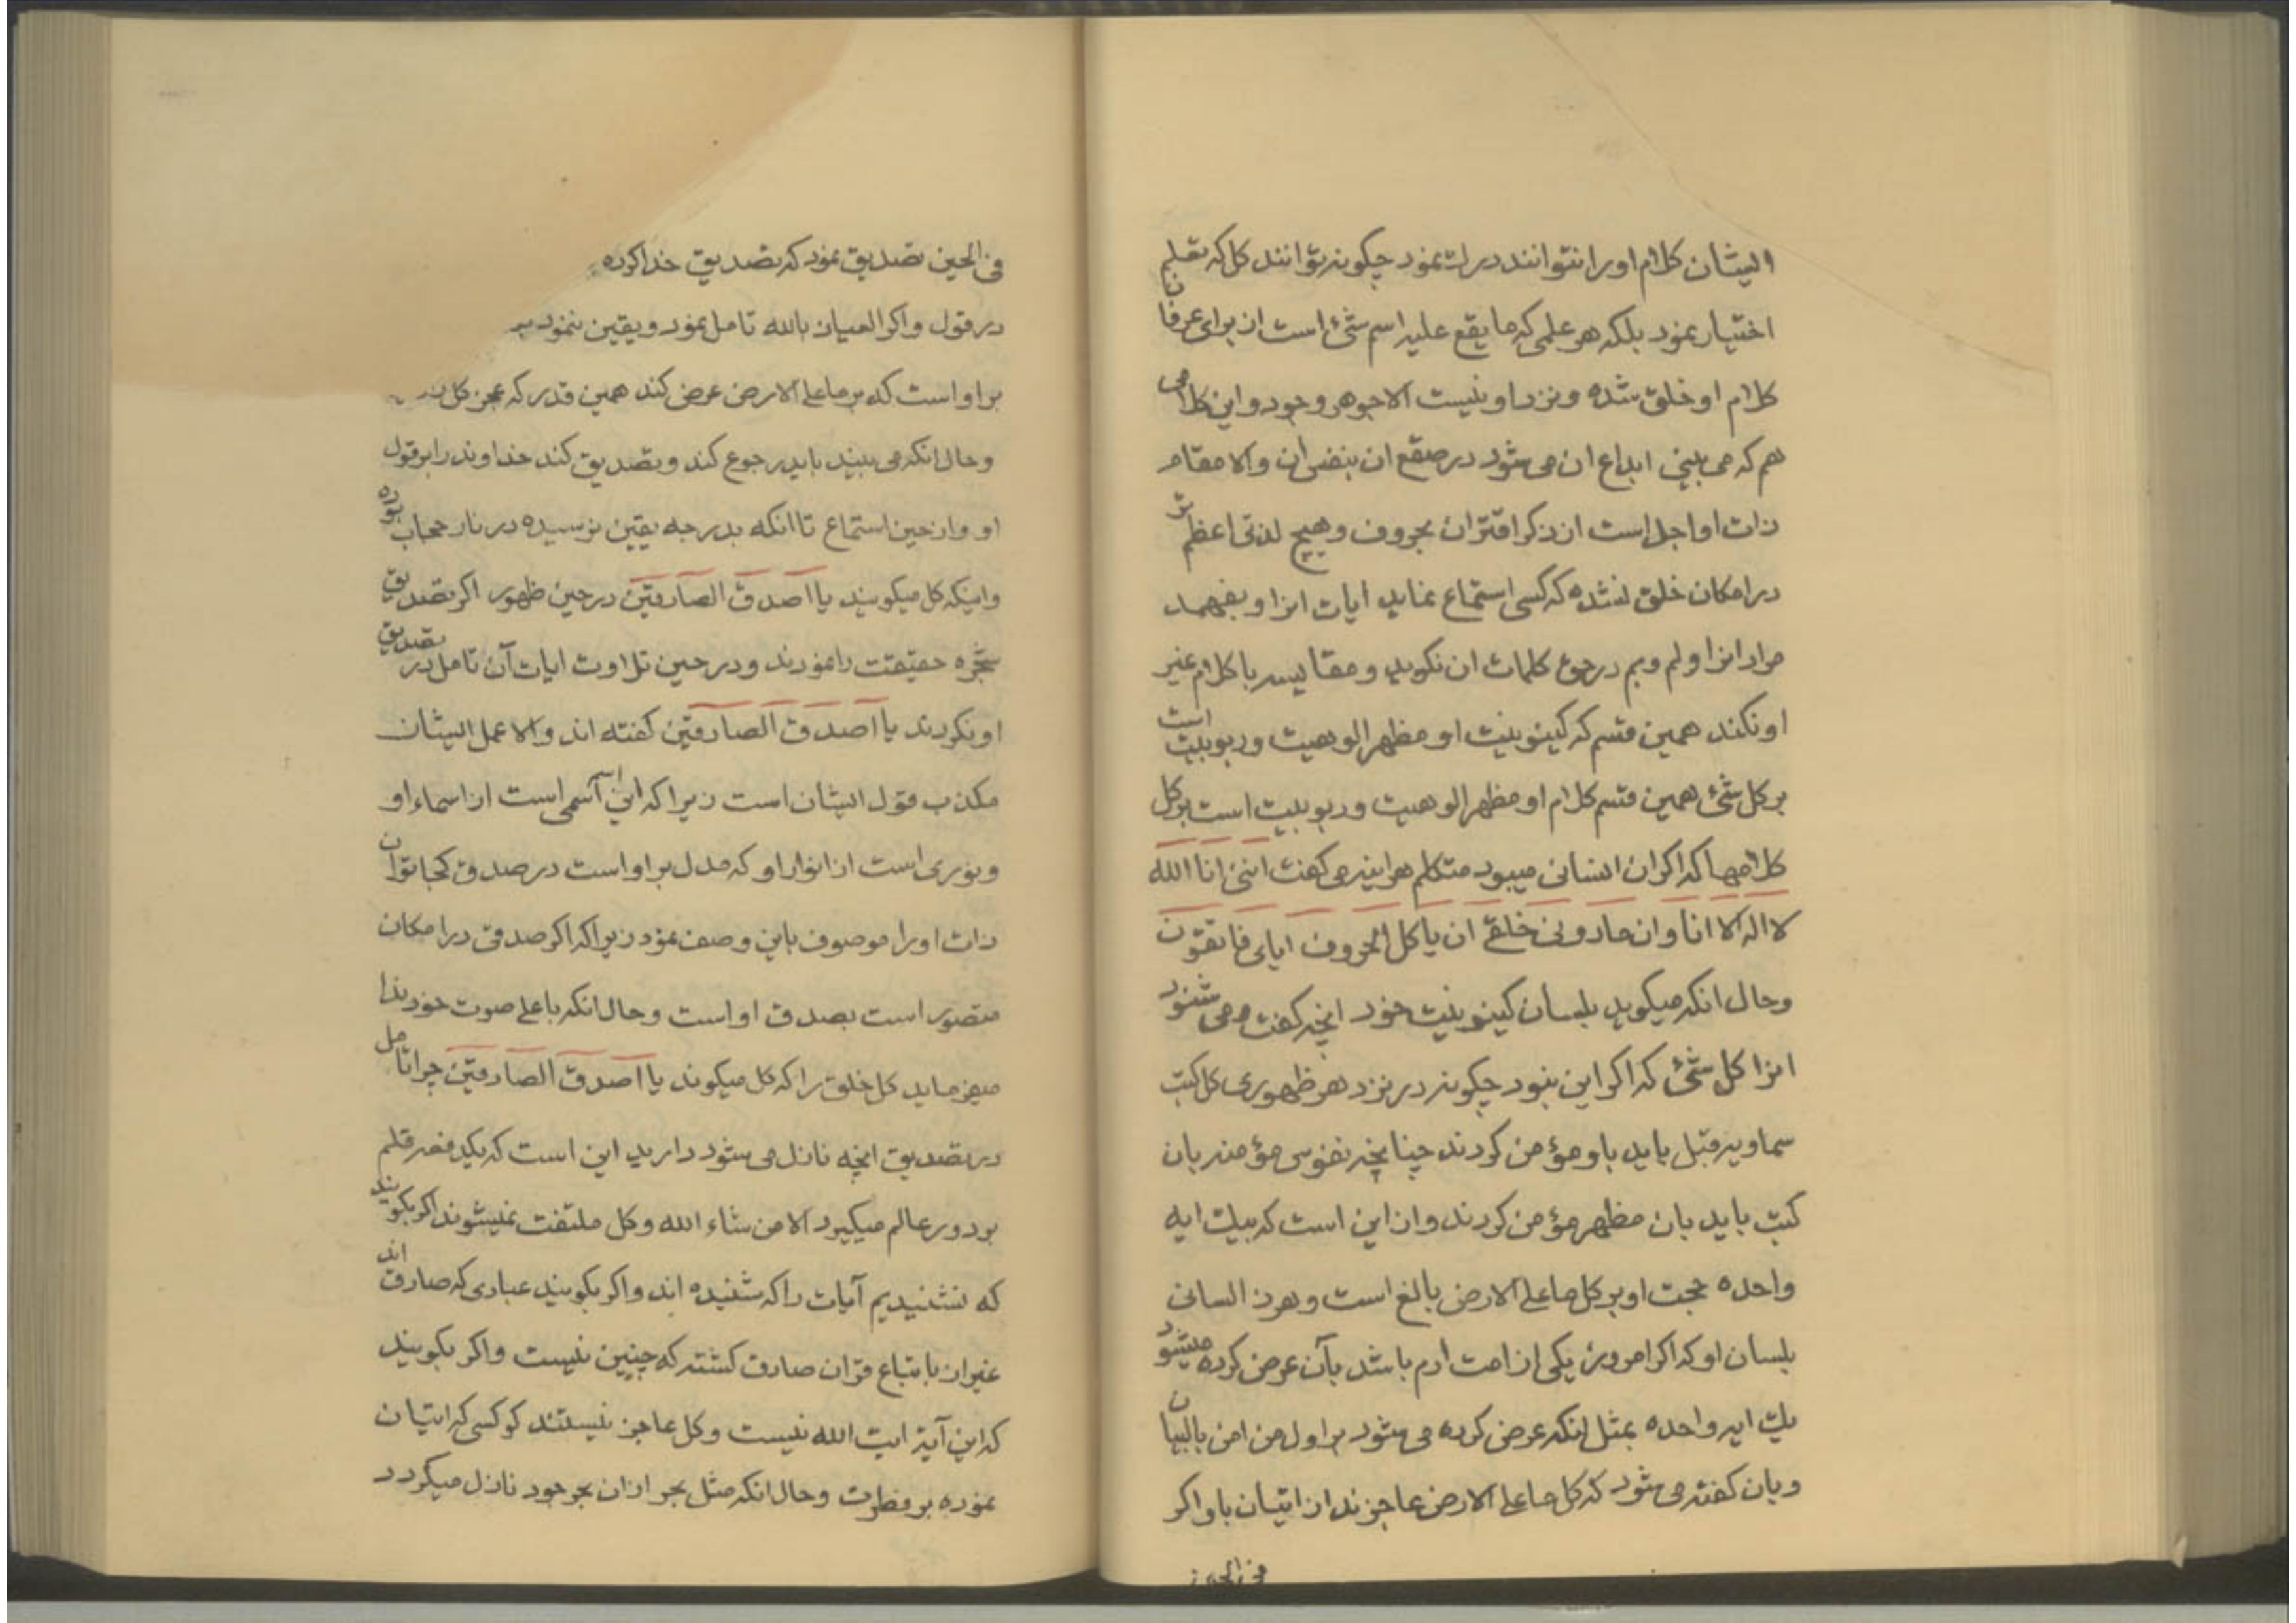 ایشان کلام اورا نتوانند درك نمود چکونه توانند کل که تقلم
اختیار نمود بلکه هر علمی که ما یقع علیه اسم شئ است از برای عرفان
کلام او خلق شده ونزد او نیست الا جوهر وجود واین کلامی
هم که می بینی ابداع ان می شود در صقع ان بنفس ان والا مقام
ذات او اجل است از ذکر اقتران بحروف وهیچ لذتی اعظم تر
در امکان خلق نشده که کسی استماع نماید ایات انرا وبفهمد
مراد انرا ولم وبم در حق کلمات ان نکوید ومقایسه با کلام غیر
او نکند همین قسم که کینونیت او مظهر الوهیت وربوبیت است
بر کل شئ همین قسم کلام او مظهر الوهیت وربوبیت است بر کل
کلامها که اکر ان انسانی میبود متکلم هراینه می کفت اننی انا الله
لا اله الا انا وان مادونی خلقی ان یا کل الحروف ایای فاتقون
وحال انکه میکوید بلسان کینونیت خود انچه کفت ومی شنود
انرا کل شئ که اکر این نبود چکونه در نزد هر ظهوری کل کتب
سماویه قبل باید باو مؤمن کردند چنانچه نفوس مؤمنه بان
کتب باید بان مظهر مؤمن کردند وان این است که بیك ایه
واحده حجت او بر کل ما علی الارض بالغ است وهر ذا لسانی
بلسان او که اکر امروز یکی از امت ادم باشد بآن عرض کرده میشود
یك ایه واحده بمثل انکه عرض کرده می شود بر اول من امن بالبیان
وبان کفته می شود که کل ما علی الارض عاجزند از اتیان باو اکر
فی الحین
فی الحین تصدیق نمود که تصدیق خدا کرده
در قول واکر العیاذ بالله تامل نمود ویقین ننمود
بر او است که بر ما علی الارض عرض کند همین قدر که عجز کل
وحال انکه می بیند باید رجوع کند وتصدیق کند خداوند را بر قول
او واز حین استماع تا انکه بدرجه یقین نرسیده در نار حجاب بوده
واینکه کل میکویند یا اصدق الصادقین در حین ظهور اکر تصدیق
شجره حقیقت را نمودند ودر حین تلاوت ایات آن تامل در تصدیق
او نکردند یا اصدق الصادقین کفته اند والا عمل ایشان
مکذب قول ایشان است زیرا که این اسم اسمی است از اسماء او
ونوری است از انوار او که مدل بر او است در صدق کجا توان
ذات اورا موصوف باین وصف نمود زیرا که اکر صدقی در امکان
متصور است بصدق او است وحال انکه باعلی صوت خود ندا
میفرماید کل خلق را که کل میکوند یا اصدق الصادقین چرا تامل
در تصدیق انچه نازل می شود دارید این است که یکدفعه قلم
بر دور عالم میکیرد الا من شاء الله وکل ملتفت نمیشوند اکر بکویند
که نشنیدیم آیات را که شنیده اند واکر بکویند عبادی که صادق اند
غیر ان باتباع قران صادق کشته که چنین نیست واکر بکویند
که این آیة ایت الله نیست وکل عاجز نیستند کو کسی که اتیان
نموده بر فطرت وحال انکه مثل بحر از ان بحر جود نازل میکردد